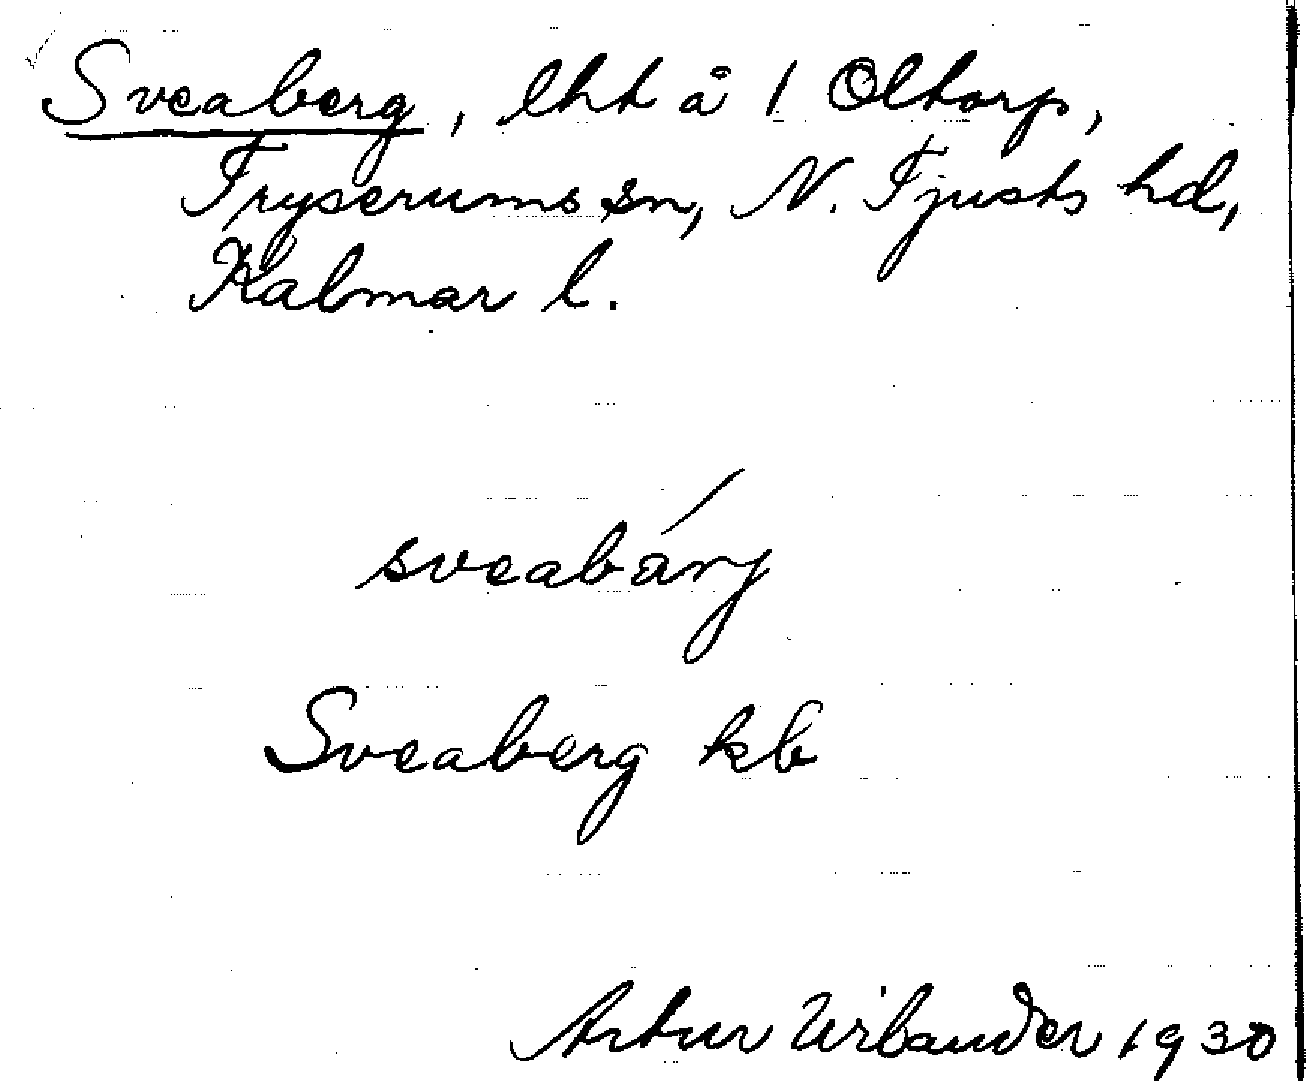 Sveaberg, lht å 1 Oltorp,
Tryserums sn, N. Tjusts hd,
Kalmar l.
sveabárj
Sveaberg kb
Artur 1930